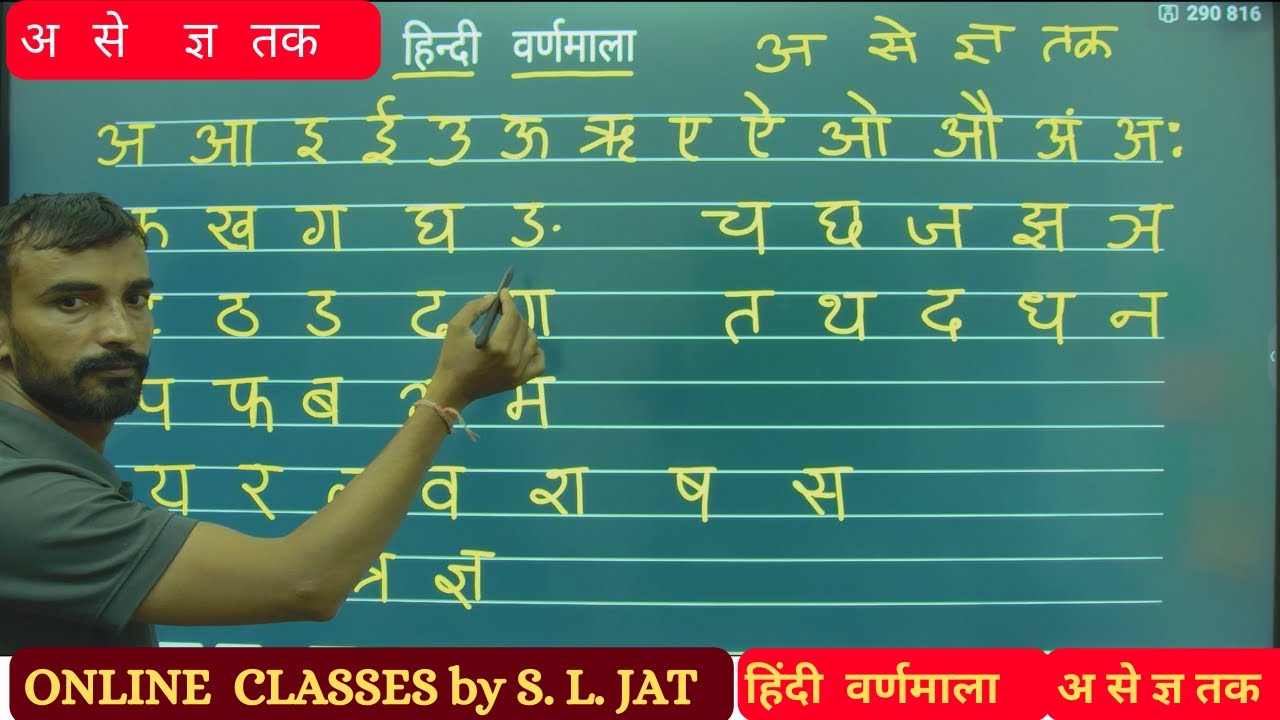 अ से ज्ञ तक
हिन्दी वर्णमाला
अ से ज्ञ तक
290 816
अ आ इ ई उ ऊ ऋ ए ऐ ओ औ अं अः
ख ग घ ङ च छ ज झ ञ
ठ ड ढ ण त थ द ध न
प फ ब म
य र व श ष स
त्र ज्ञ
ONLINE CLASSES by S. L. JAT
हिंदी वर्णमाला
अ से ज्ञ तक